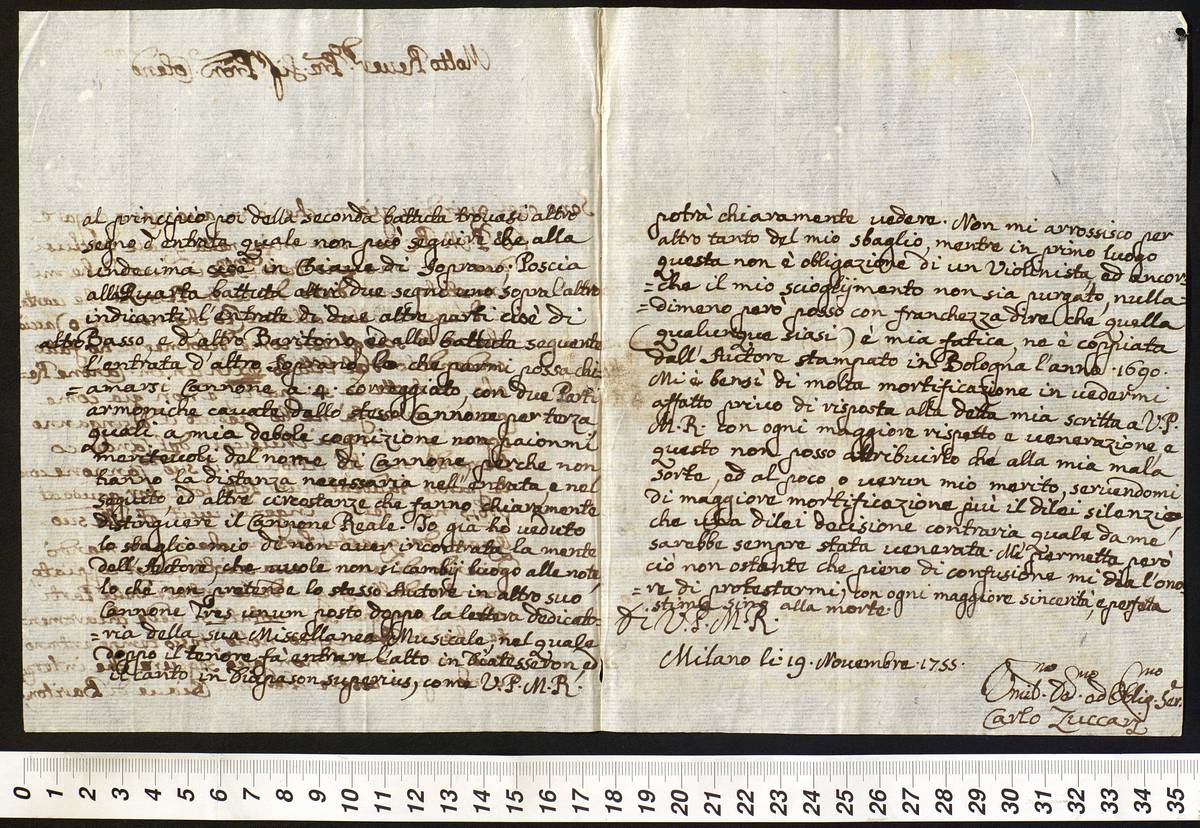 al principio poi della seconda battuta trovasi altro
segno d'entrata quale non può seguire che alla
undecima cioè in Chiave di Soprano. Poscia
alla Quarta battuta altri due segni uno sopra l'altro
indicante l'entrate di due altre parti cioè di
altro Basso e d'altro Baritono, ed alla battuta seguente
l'entrata d'altro Soprano, lo che parmi possa chi=
=amarsi Cannone a 4. correggiato, con due Parti
armoniche cavate dallo stesso Cannone per terza,
quali a mia debole cognizione non paionmi
meritevoli del nome di Cannone, perche non
hanno la distanza necessaria nel entrata, e nel
seguito, ed altre circostanze che fanno chiaramente
distinguere il Cannone Reale. Io già ho veduto
lo sbaglio mio de non aver incontrata la mente
dell'Autore, che vuole non si cambij luogo alle note,
lo chè non pretende lo stesso Autore in altro suo
Cannone Tres unum posto doppo la lettera dedicato=
=ria della sua Miscellanea Musicale, nel quale
doppo il tenore fà entrare l'alto in Diatesseron ed
il Canto in Diapason superius, come V. P. M. R.
potrà chiaramente vedere. Non mi arrossisco per
altro tanto del mio sbaglio, mentre in primo luogo
questa non è obligazione di un Violinista, ed encor=
=che il mio scioglimento non sia purgato, nulla=
=dimeno però posso con franchezza dire (che quella
(qualunque siasi) è mia fatica, ne è copiata
dall'Autore stampato in Bologna l'anno 1690.
Mi è bensì di molta mortificazione in vedermi
affatto privo di risposta alla detta mia scritta a V. P.
M. R. con ogni maggiore rispetto e venerazione, e
questo non posso attribuirlo che alla mia mala
sorte, ed al poco, o verun mio merito, servendomi
di maggiore mortificazione più il dilei silenzio,
che una dilei decisione contraria quale da me
sarebbe sempre stata venerata. Mi permetta però
ciò non ostante che pieno di confusione mi dia l'ono=
=re di protestarmi, con ogni maggiore sincerità, e perfetta
stima sino alla morte.
Di V. P. M. R.
Milano li 19. Novembre 1755.
Umil.mo Dev.mo ed Oblig.mo Ser.e
Carlo Zuccari
0 1 2 3 4 5 6 7 8 9 10 11 12 13 14 15 16 17 18 19 20 21 22 23 24 25 26 27 28 29 30 31 32 33 34 35